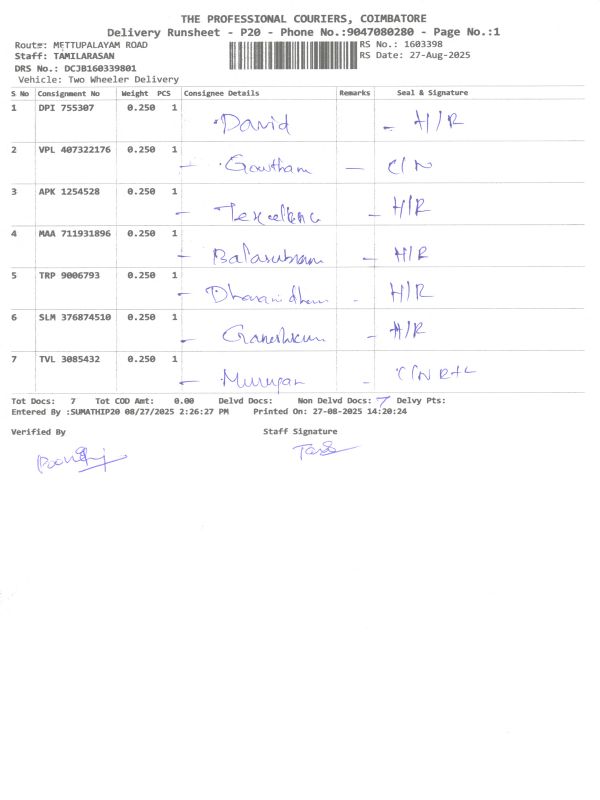 THE PROFESSIONAL COURIERS, COIMBATORE
Delivery Runsheet - P20 - Phone No.:9047080280 - Page No.:1
Route: METTUPALAYAM ROAD RS No.: 1603398
Staff: TAMILARASAN RS Date: 27-Aug-2025
DRS No.: DCJB160339801
Vehicle: Two Wheeler Delivery
S No Consignment No Weight PCS Consignee Details Remarks Seal & Signature
1 DPI 755307 0.250 1 David - H/R
2 VPL 407322176 0.250 1 - Gowtham - C/N
3 APK 1254528 0.250 1 - Texcellenc - H/R
4 MAA 711931896 0.250 1 - Balasubram - H/R
5 TRP 9006793 0.250 1 - Dharanidhar - H/R
6 SLM 376874510 0.250 1 - Ganeshkum - H/R
7 TVL 3085432 0.250 1 - Murugan - C/N
Tot Docs: 7 Tot COD Amt: 0.00 Delvd Docs: Non Delvd Docs: 7 Delvy Pts:
Entered By :SUMATHIP20 08/27/2025 2:26:27 PM Printed On: 27-08-2025 14:20:24
Verified By Staff Signature